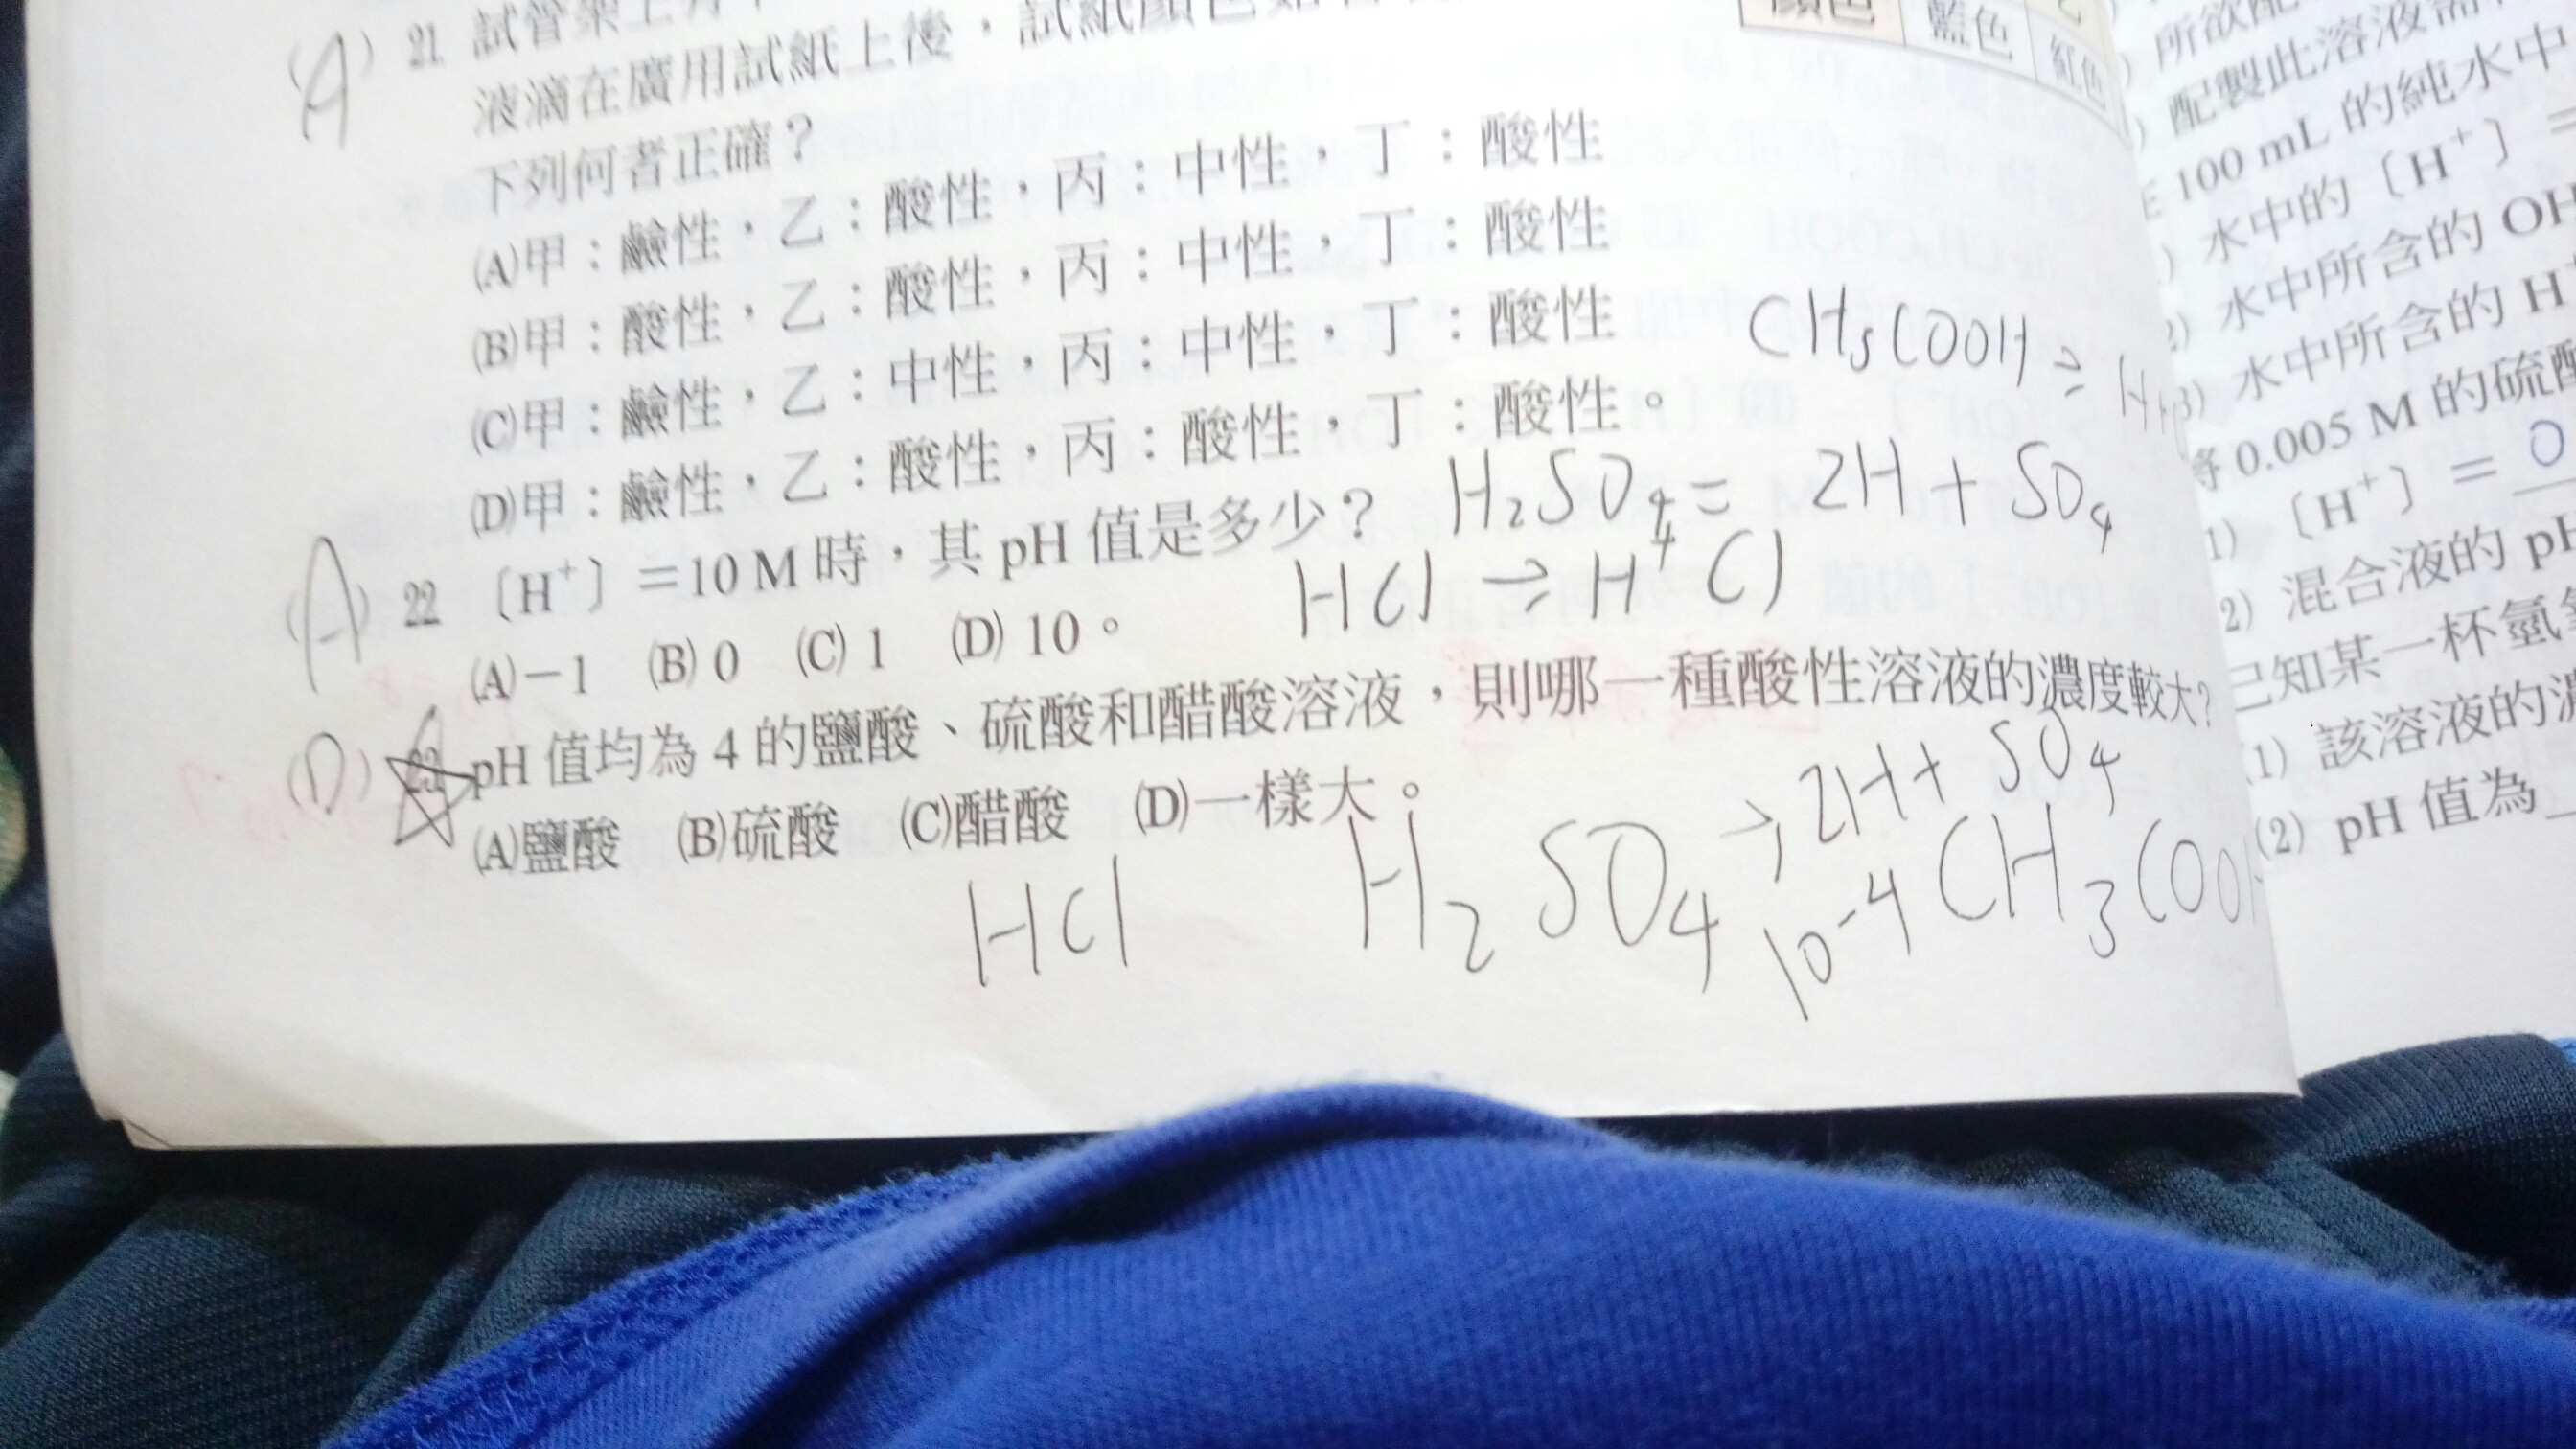 (A) 21 試管架上有
液滴在廣用試紙上後,試紙顏色如
下列何者正確?
(A)甲:鹼性,乙:酸性,丙:中性,丁:酸性
(B)甲:酸性,乙:酸性,丙:中性,丁:酸性
(C)甲:鹼性,乙:中性,丙:中性,丁:酸性
(D)甲:鹼性,乙:酸性,丙:酸性,丁:酸性。
(A) 22 〔H⁺〕=10 M 時,其 pH 值是多少?
(A)-1 (B) 0 (C) 1 (D) 10。
(D) 23 pH 值均為 4 的鹽酸、硫酸和醋酸溶液,則哪一種酸性溶液的濃度較大?
(A)鹽酸 (B)硫酸 (C)醋酸 (D)一樣大。
顏色 藍色 紅色
CH₃COOH ⇌ H+
H₂SO₄ = 2H + SO₄
HCl ⇌ H⁺ Cl
HCl H₂SO₄ → 2H + SO₄
10-4 CH₃COO
所欲配
配製此溶液需
100 mL 的純水中
水中的〔H⁺〕=
2) 水中所含的 OH
3) 水中所含的 H
將 0.005 M 的硫酸
1) 〔H⁺〕= 0
2) 混合液的 pH
已知某一杯氫氧
(1) 該溶液的濃
(2) pH 值為